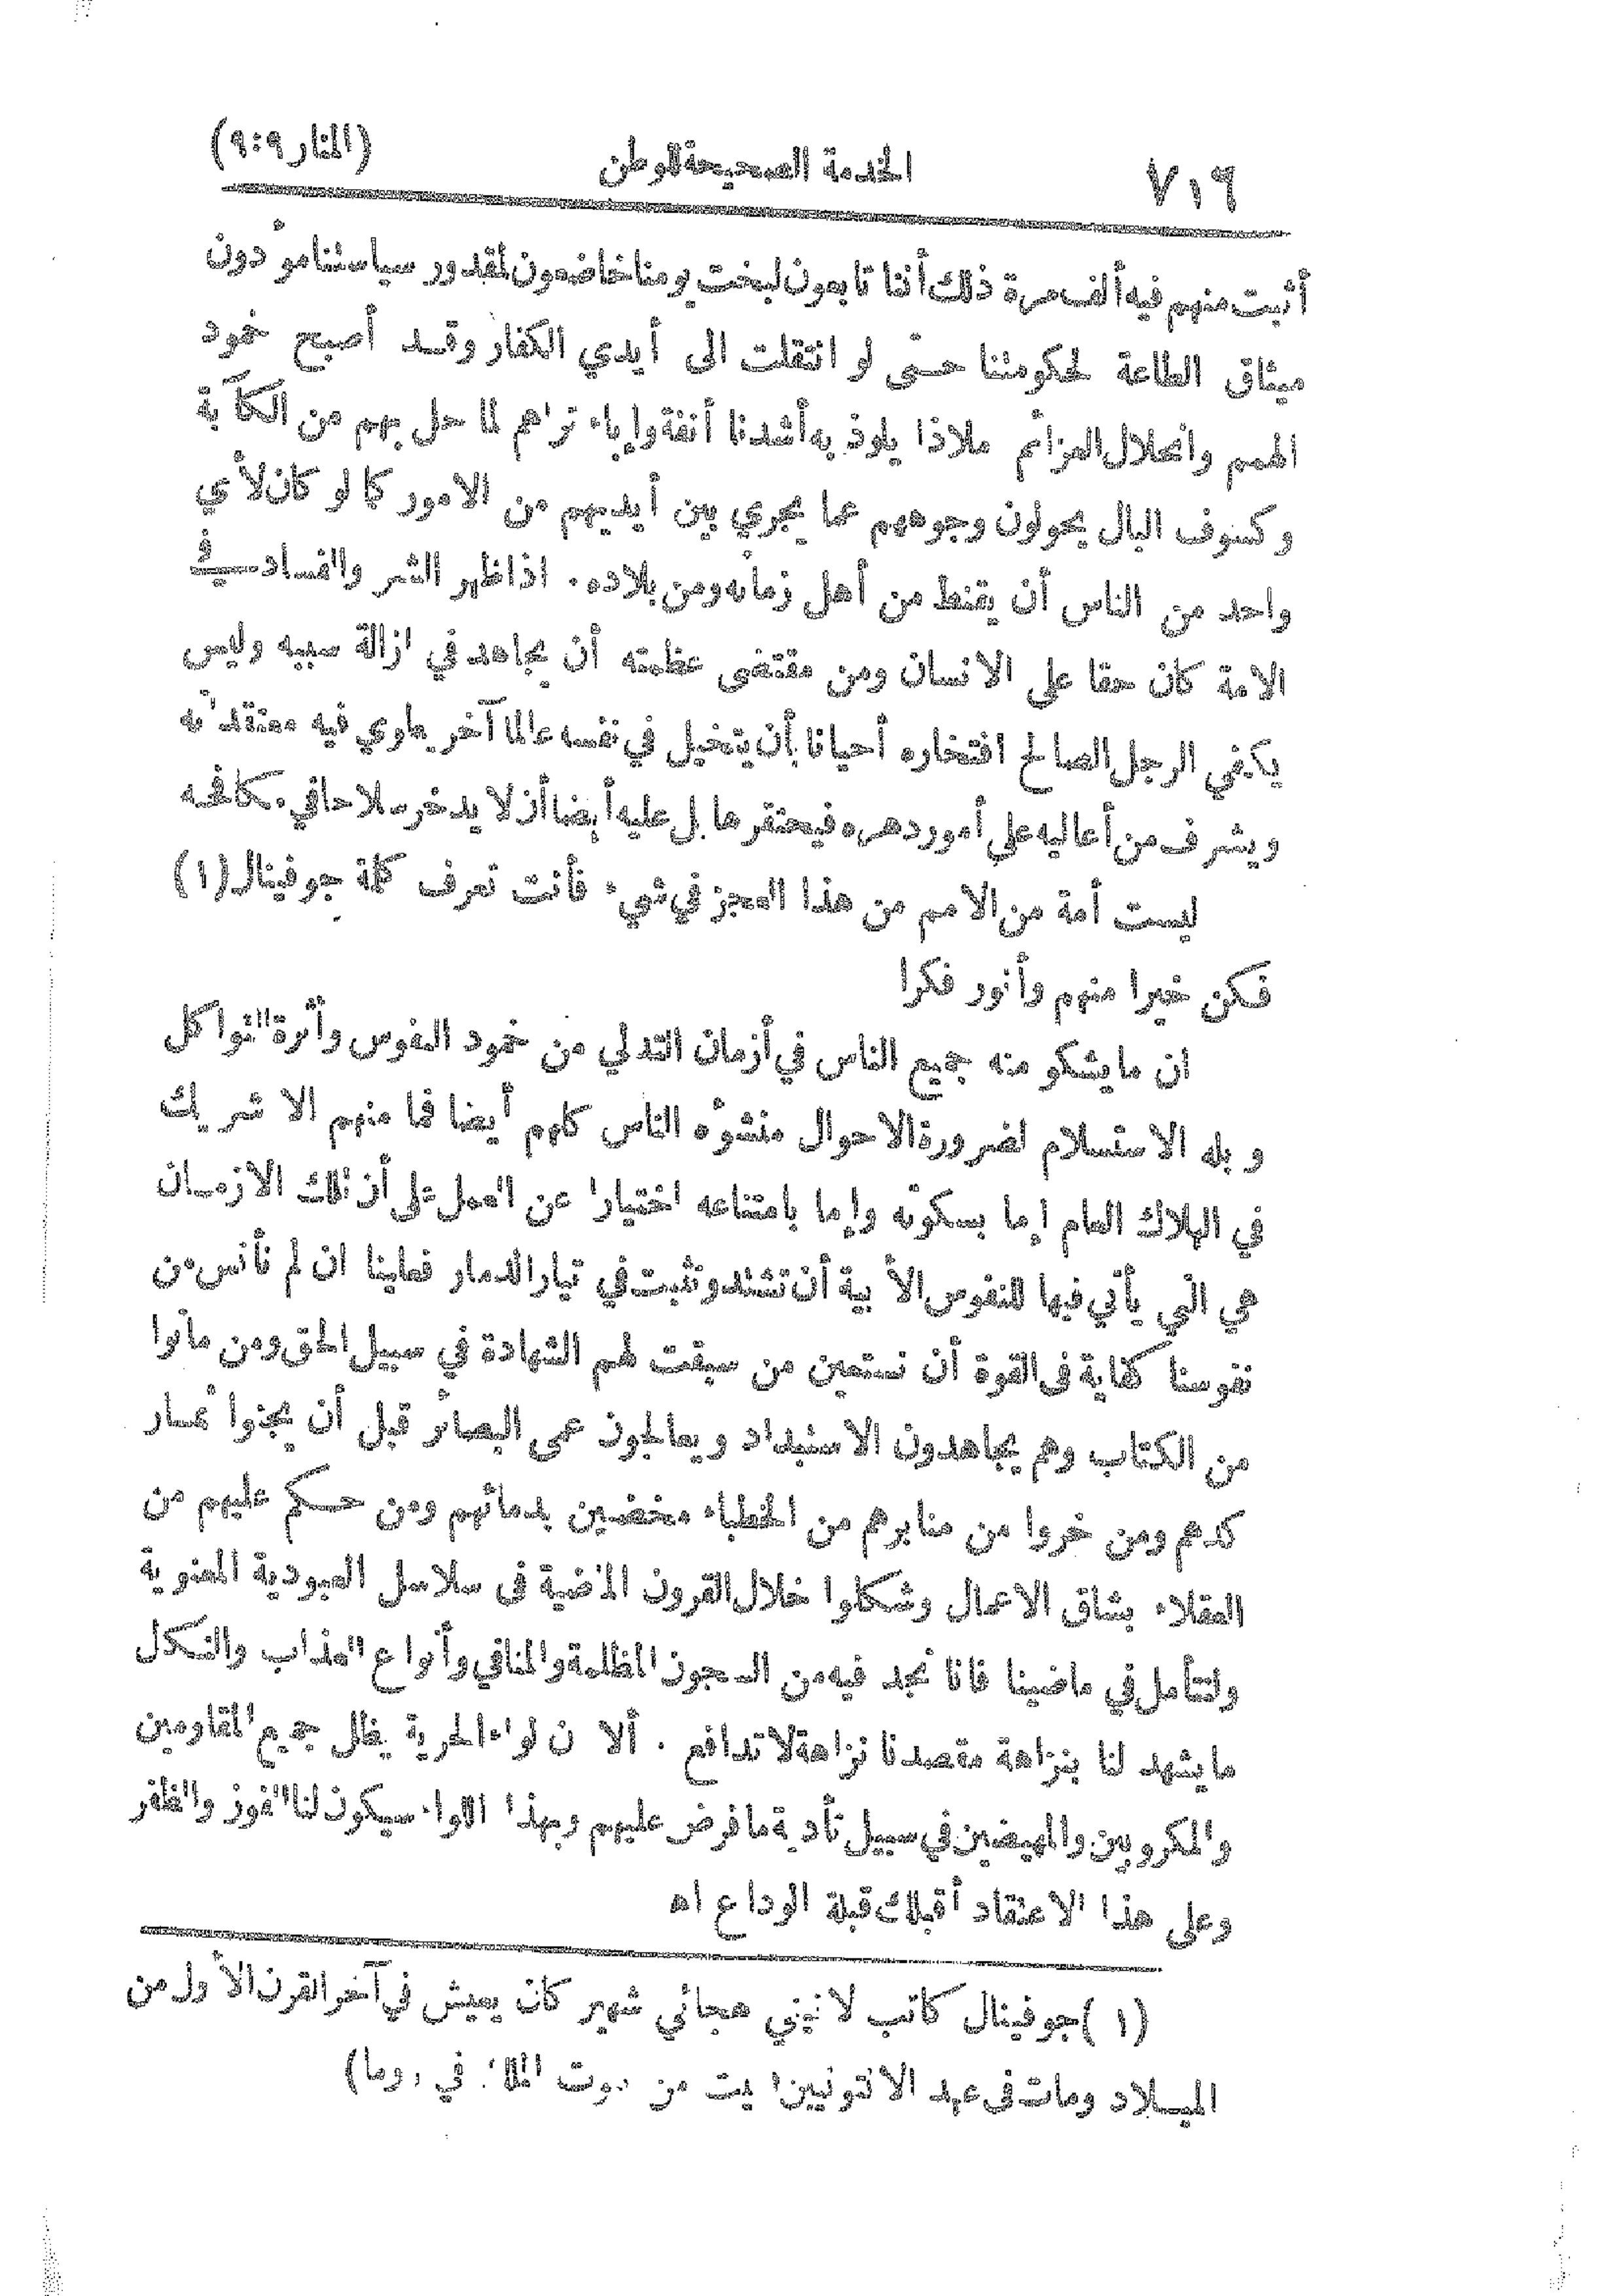 ٧١٦ الخدمة الصحيحة للوطن (المنار ٩:٩)
أثبت منهم فيه ألف مرة ذلك أننا تابعون لبخت يومنا خاضعون لمقدور سياستنا مؤدون
ميثاق الطاعة لحكومتنا حتى لو انتقلت الى أيدي الكفار وقد أصبح خمود
الهمم وانحلال العزائم ملاذا يلوذ به أشدنا أنفة وإباء تراهم لما حل بهم من الكآبة
وكسوف البال يحولون وجوههم عما يجري بين أيديهم من الامور كما لو كان لأي
واحد من الناس أن يقنط من أهل زمانه ومن بلاده . اذا ظهر الشر والفساد في
الامة كان حقا على الانسان ومن مقتضى عظمته أن يجاهد في ازالة سببه وليس
يكفي الرجل الصالح افتخاره أحيانا بأن يتخيل في نفسه عالما آخر يطوي فيه معتقداته
ويشرف من أعاليه على أمور دهره فيحتقرها بل عليه أيضا أن لا يدخر سلاحا في مكافحه
ليست أمة من الامم من هذا العجز في شيء فأنت تعرف كلمة جوفينال (١)
فكن خيرا منهم وأنور فكرا
ان ما يشكو منه جميع الناس في أزمان التدلي من خمود النفوس وأثرة التواكل
وبله الاستسلام لضرورة الاحوال منشؤه الناس كلهم أيضا فما منهم الا شريك
في الهلاك العام إما بسكوته وإما بامتناعه اختيارا عن العمل على أن تلك الازمان
هي التي يأتي فيها للنفوس الأبية أن تشتد وتثبت في تيار الدمار فعلينا ان لم نأنس من
نفوسنا كفاية في القوة أن نستعين من سبقت لهم الشهادة في سبيل الحق ومن ماتوا
من الكتاب وهم يجاهدون الاستبداد ويعالجون عمى البصائر قبل أن يجنوا ثمار
كدهم ومن خروا من منابرهم من الخطباء مخضبين بدمائهم ومن حكم عليهم من
العقلاء بشاق الاعمال وشكلوا خلال القرون الماضية في سلاسل العبودية المعنوية
ولنتأمل في ماضينا فانا نجد فيه من السجون المظلمة والمنافي وأنواع العذاب والتنكل
ما يشهد لنا بنزاهة مقصدنا نزاهة لا تدافع . ألا ن لواء الحرية يظلل جميع المقاومين
والمكروبين والمهيضين في سبيل تأدية ما فرض عليهم وبهذا اللواء سيكون لنا الفوز والظفر
وعلى هذا الاعتقاد أقبلك قبلة الوداع اه
(١) جوفينال كاتب لاتيني هجائي شهير كان يعيش في آخر القرن الأول من
الميلاد ومات في عهد الانتونيين بيت من بيوت الملك في روما)